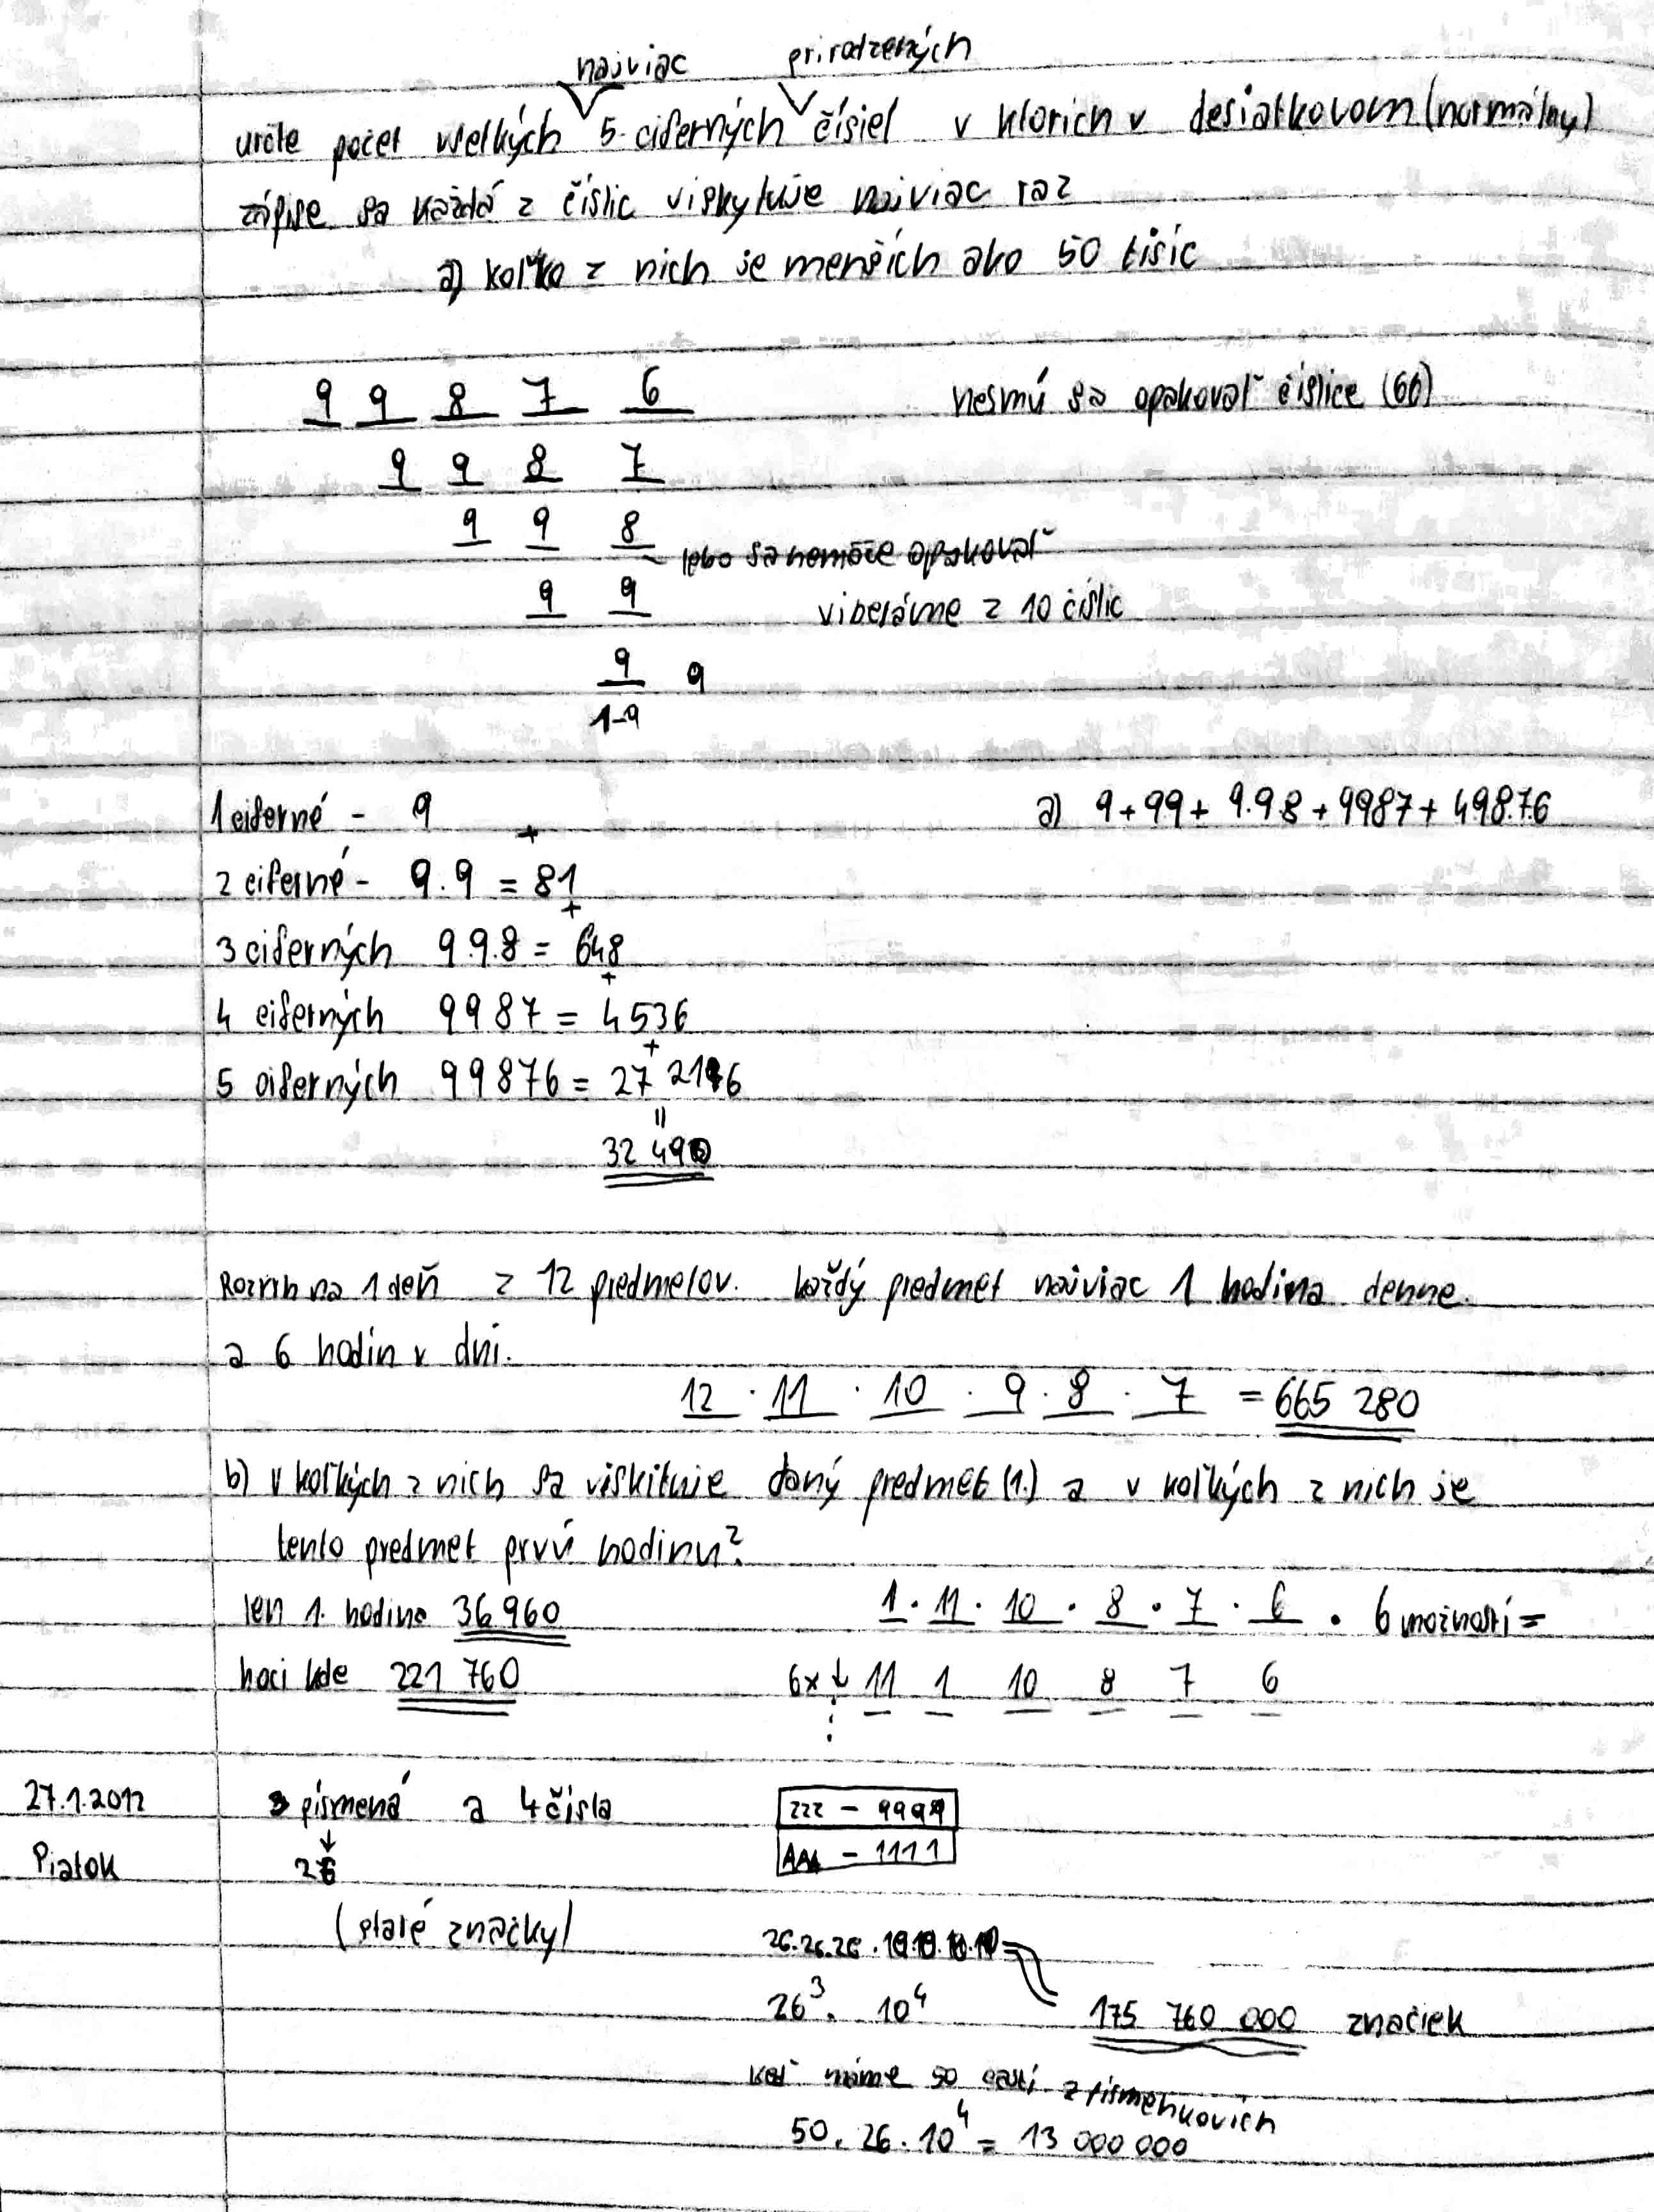 najviac prirodzených
určte počet všetkých 5-ciferných čísiel v ktorích v desiatkovom (normálny)
zápise sa každá z číslic viskytuje najviac raz
a) koľko z nich je menších ako 50 tisíc
9 9 8 7 6 nesmú sa opakovať číslice (66)
9 9 8 7
9 9 8
lebo sa nemôže opakovať
9 9 viberáme z 10 číslic
9 9
1-9
1 ciferné - 9 + a) 9+99+9.98+9987+498.7.6
2 ciferné - 9.9 = 81
+
3 ciferných 9.9.8 = 648
+
4 ciferných 9987 = 4536
+
5 ciferných 99876 = 27 216
=
32 490
Rozvrh na 1 deň z 12 predmetov. každý predmet najviac 1 hodina denne.
a 6 hodín v dni.
12 . 11 . 10 . 9 . 8 . 7 = 665 280
b) v koľkých z nich sa viskituje daný predmet (1.) a v koľkých z nich je
tento predmet prvú hodinu?
len 1. hodina 36 960 1 . 11 . 10 . 8 . 7 . 6 . 6 možností =
hoci kde 221 760 6x ↓ 11 1 10 8 7 6
27.1.2012 3 písmená a 4 čísla ZZZ - 9999
↓
AAA - 1111
Piatok 26
(staré značky) 26.26.26.10.10.10.10=
26³. 10⁴ 175 760 000 značiek
keď máme 50 z písmenkovích
50. 26. 10⁴ = 13 000 000